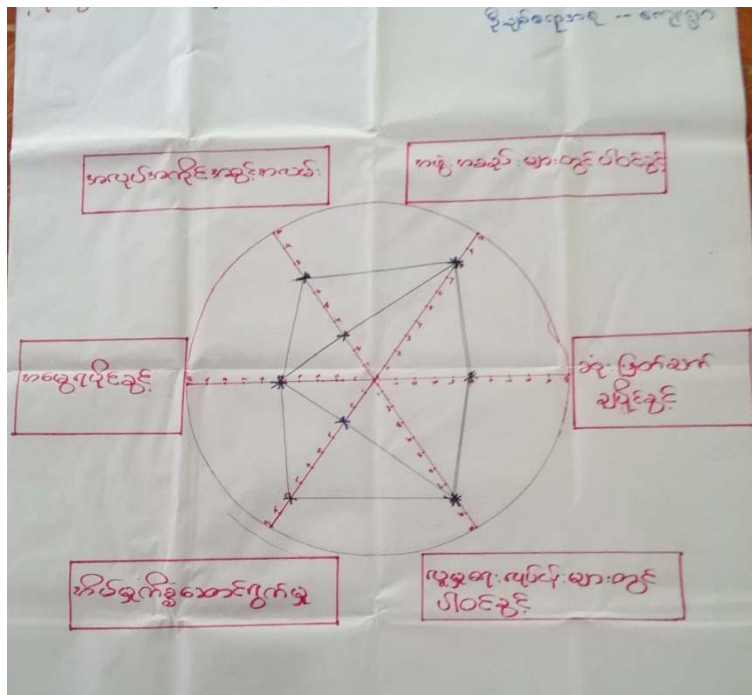 အလုပ်အကိုင်အခွင့်အလမ်း
အဖွဲ့အစည်းများတွင်ပါဝင်ခွင့်
အမွေရပိုင်ခွင့်
ဆုံးဖြတ်ချက်
ချပိုင်ခွင့်
အိမ်မှုကိစ္စဆောင်ရွက်မှု
လူမှုရေးလုပ်ငန်းများတွင်
ပါဝင်ခွင့်